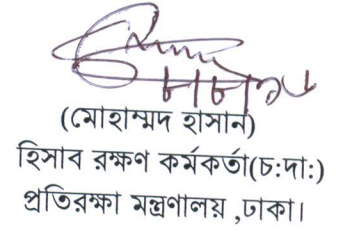 (মোহাম্মদ হাসান)
হিসাব রক্ষণ কর্মকর্তা(চ:দা:)
প্রতিরক্ষা মন্ত্রণালয় ,ঢাকা।